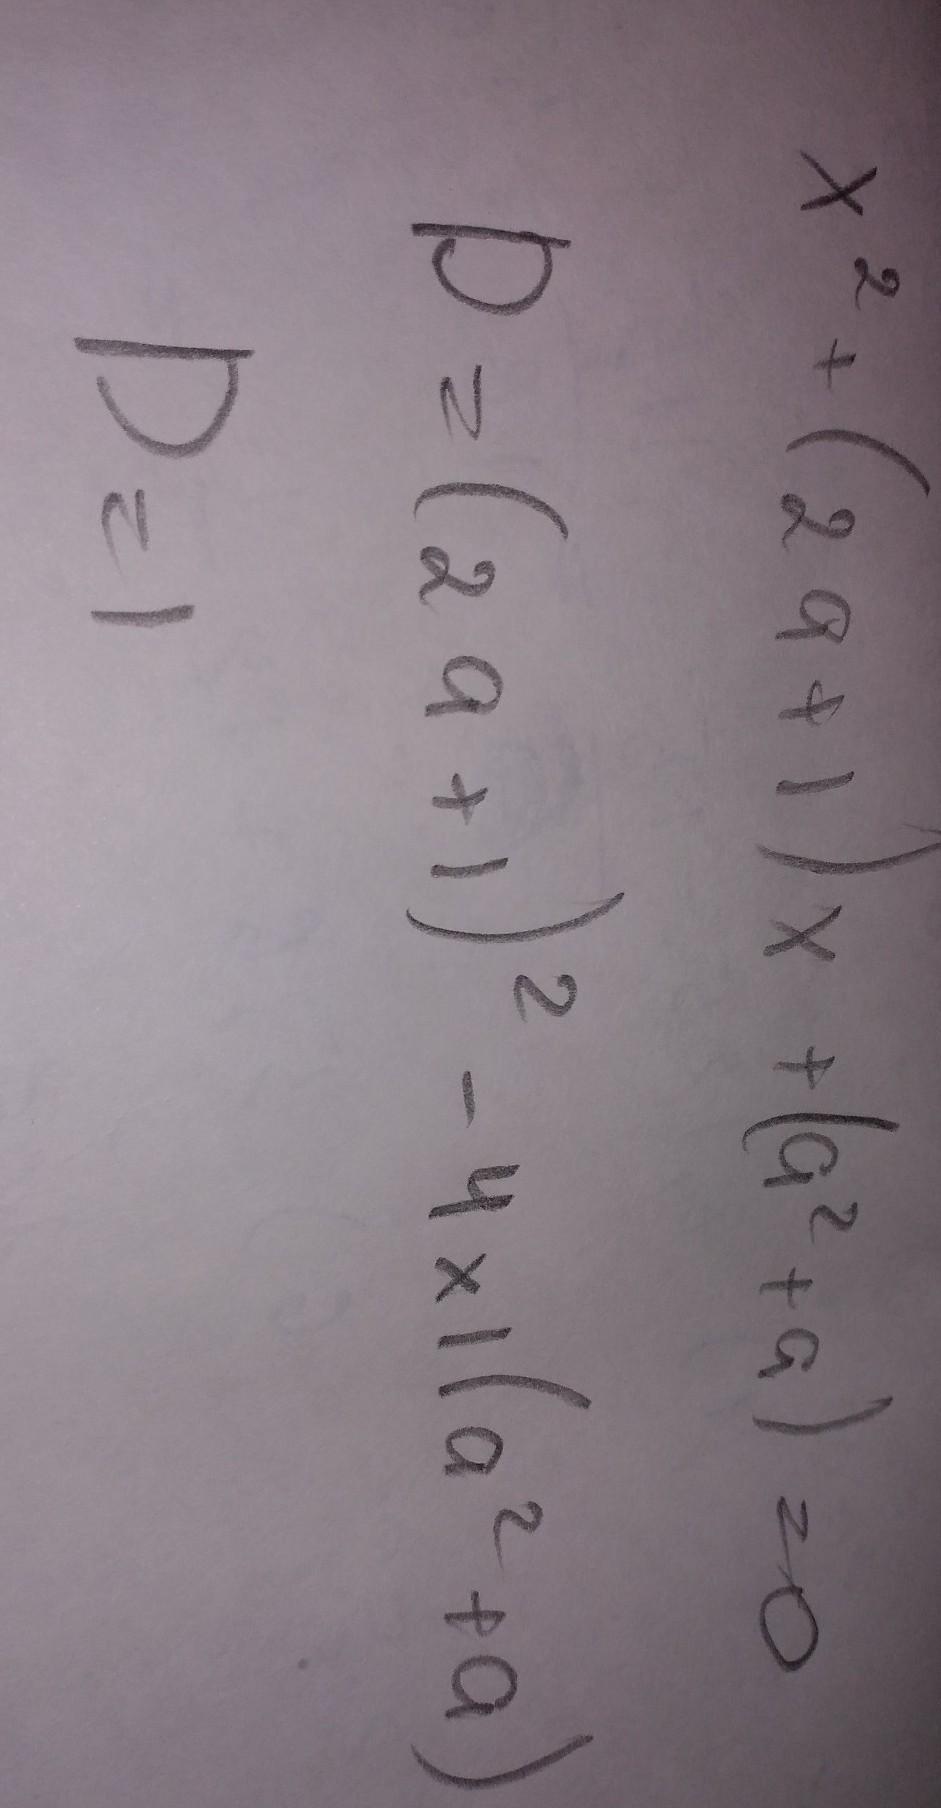 x² + (2a+1)x + (a²+a) = 0
D = (2a+1)² - 4x1(a²+a)
D = 1